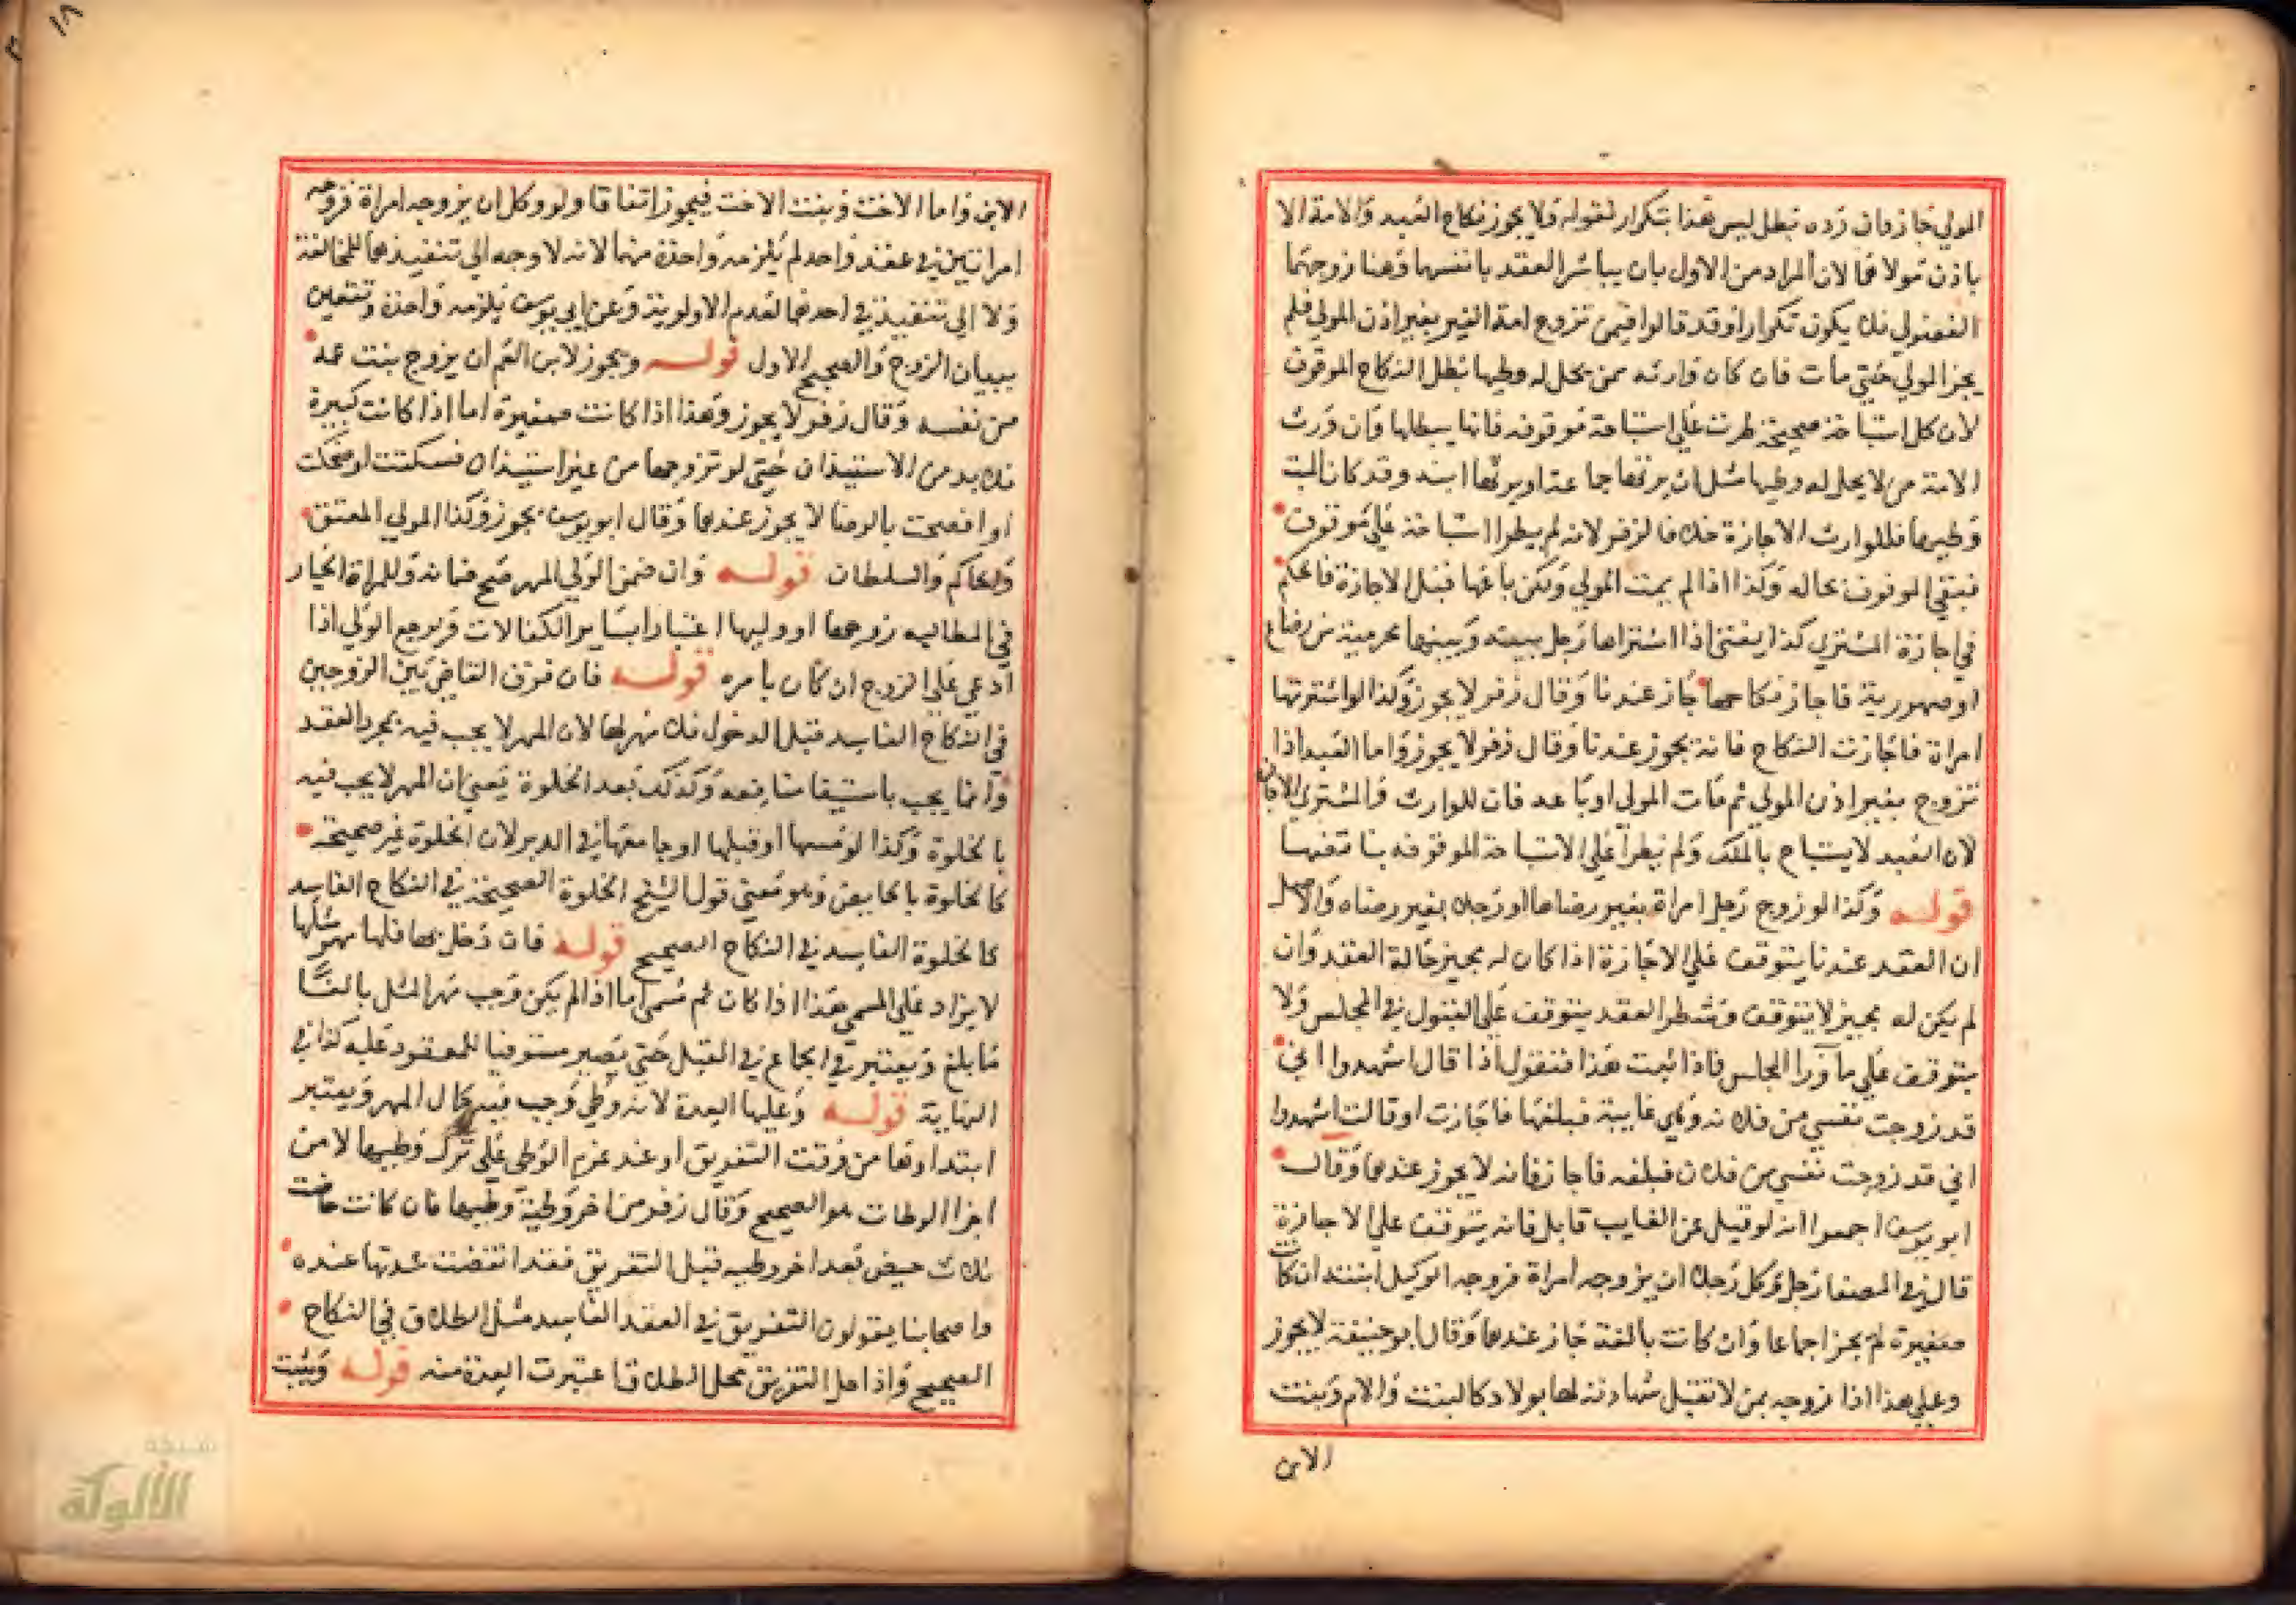 المولي جاز وان رده بطل ليس هذا بتكرار لقوله ولا يجوز نكاح العبد والامة الا
باذن مولاهما لان المراد من الاول بان يباشر العقد بانفسهما وهنا زوجهما
الفضولي فلا يكون تكرارا وقد قالوا فيمن تزوج امة الغير بغير اذن المولي فلم
يجز المولي حتي مات فان كان وارثه ممن يحل له وطيها بطل النكاح الموقوف
لان كل استباحة صحيحة طرت علي استباحة موقوفة فانها يبطلها وان ورث
الامة من لا يحل له وطيها مثل ان يرثها جماعة او يرثها ابنه وقد كان الميت
وطيها فللوارث الاجازة خلافا لزفر لانه لم يطرا استباحة علي موقوف
فبقي الموقوف بحاله وكذا اذا لم يمت المولي ولكن باعها قبل الاجازة فالحكم
في اجازة المشتري كذا يعني اذا اشتراها رجل بينه وبينها محرمية من رضاع
او صهورية فاجاز نكاحها جاز عندنا وقال زفر لا يجوز وكذا لو اشترتها
امراة فاجازت النكاح فانه يجوز عندنا وقال زفر لا يجوز واما العبد اذا
تزوج بغير اذن المولي ثم مات المولي او باعه فان للوارث والمشتري الاجازة
لان العبد لا يستباح بالملك ولم يطرا علي الاستباحة الموقوفة ما ينفيها
قوله وكذا لو زوج رجل امراة بغير رضاها او رجلا بغير رضاه والاصل
ان العقد عندنا يتوقف علي الاجازة اذا كان له مجيز حالة العقد وان
لم يكن له مجيز لا يتوقف وشطر العقد يتوقف علي القبول في المجلس ولا
يتوقف علي ما ورا المجلس فاذا ثبت هذا فنقول اذا قال اشهدوا اني
قد زوجت نفسي من فلانة وهي غايبة فبلغها فاجازت او قالت اشهدوا
اني قد زوجت نفسي من فلان فبلغه فاجاز فانه لا يجوز عندهما وقال
ابو يوسف اجمعوا انه لو قبل عن الغايب قابل فانه يتوقف علي الاجازة
قال في المصفا رجل وكل رجلا ان يزوجه امراة فزوجه الوكيل ابنته ان كانت
صغيرة لم يجز اجماعا وان كانت بالغة جاز عندهما وقال ابو حنيفة لا يجوز
وعلي هذا اذا زوجه بمن لا تقبل شهادته لها بولاد كالبنت والام وبنت
الابن
الابن واما الاخت وبنت الاخت فيجوز اتفاقا ولو وكل ان يزوجه امراة فزوجه
امراتين في عقد واحد لم يلزمه واحدة منهما لانه لا وجه الي تنفيذهما للمخالفة
ولا الي تنفيذ في احدهما لعدم الاولوية وعن ابي يوسف يلزمه واحدة وتتعين
ببيان الزوج والصحيح الاول قوله ويجوز لابن العم ان يزوج بنت عمه
من نفسه وقال زفر لا يجوز وهذا اذا كانت صغيرة اما اذا كانت كبيرة
فلا بد من الاستيذان حتي لو تزوجها من غير استيذان فسكتت او ضحكت
او افصحت بالرضا لا يجوز عندهما وقال ابو يوسف يجوز وكذا المولي المعتق
والحاكم والسلطان قوله وان ضمن الولي المهر صح ضمانه وللمراة الخيار
في المطالبه زوجها او وليها اعتبارا بساير الكفالات ويرجع الولي اذا
ادعي علي الزوج ان كان بامره قوله فان فرق القاضي بين الزوجين
في النكاح الفاسد قبل الدخول فلا مهر لها لان المهر لا يجب فيه بمجرد العقد
وانما يجب باستيفا منافعه وكذلك بعد الخلوة يعني ان المهر لا يجب فيه
بالخلوة وكذا لو مسها او قبلها او جامعها في الدبر لان الخلوة غير صحيحة
كالخلوة بالحايض وهو معني قول الشيخ الخلوة الصحيحة في النكاح الفاسد
كالخلوة الفاسد في النكاح الصحيح قوله فان دخل بها فلها مهر مثلها
لا يزاد علي المسمي هذا اذا كان ثم مسمي اما اذا لم يكن وجب مهر المثل بالغا
ما بلغ ويعتبر في الجماع في القبل حتي يصير مستوفيا للمعقود عليه كذا في
النهاية قوله وعليها العدة لانه وطي وجب فيه كمال المهر ويعتبر
ابتداوها من وقت التفريق او عند عزم الوطي علي ترك وطيها لا من
اخر الوطات هو الصحيح وقال زفر من اخر وطية وطيها فان كانت حاضت
ثلاث حيض بعد اخر وطيه قبل التفريق فقد انقضت عدتها عنده
واصحابنا يقولون التفريق في العقد الفاسد مثل الطلاق في النكاح
الصحيح واذا حل التفريق محل الطلاق اعتبرت العدة منه قوله ويثبت